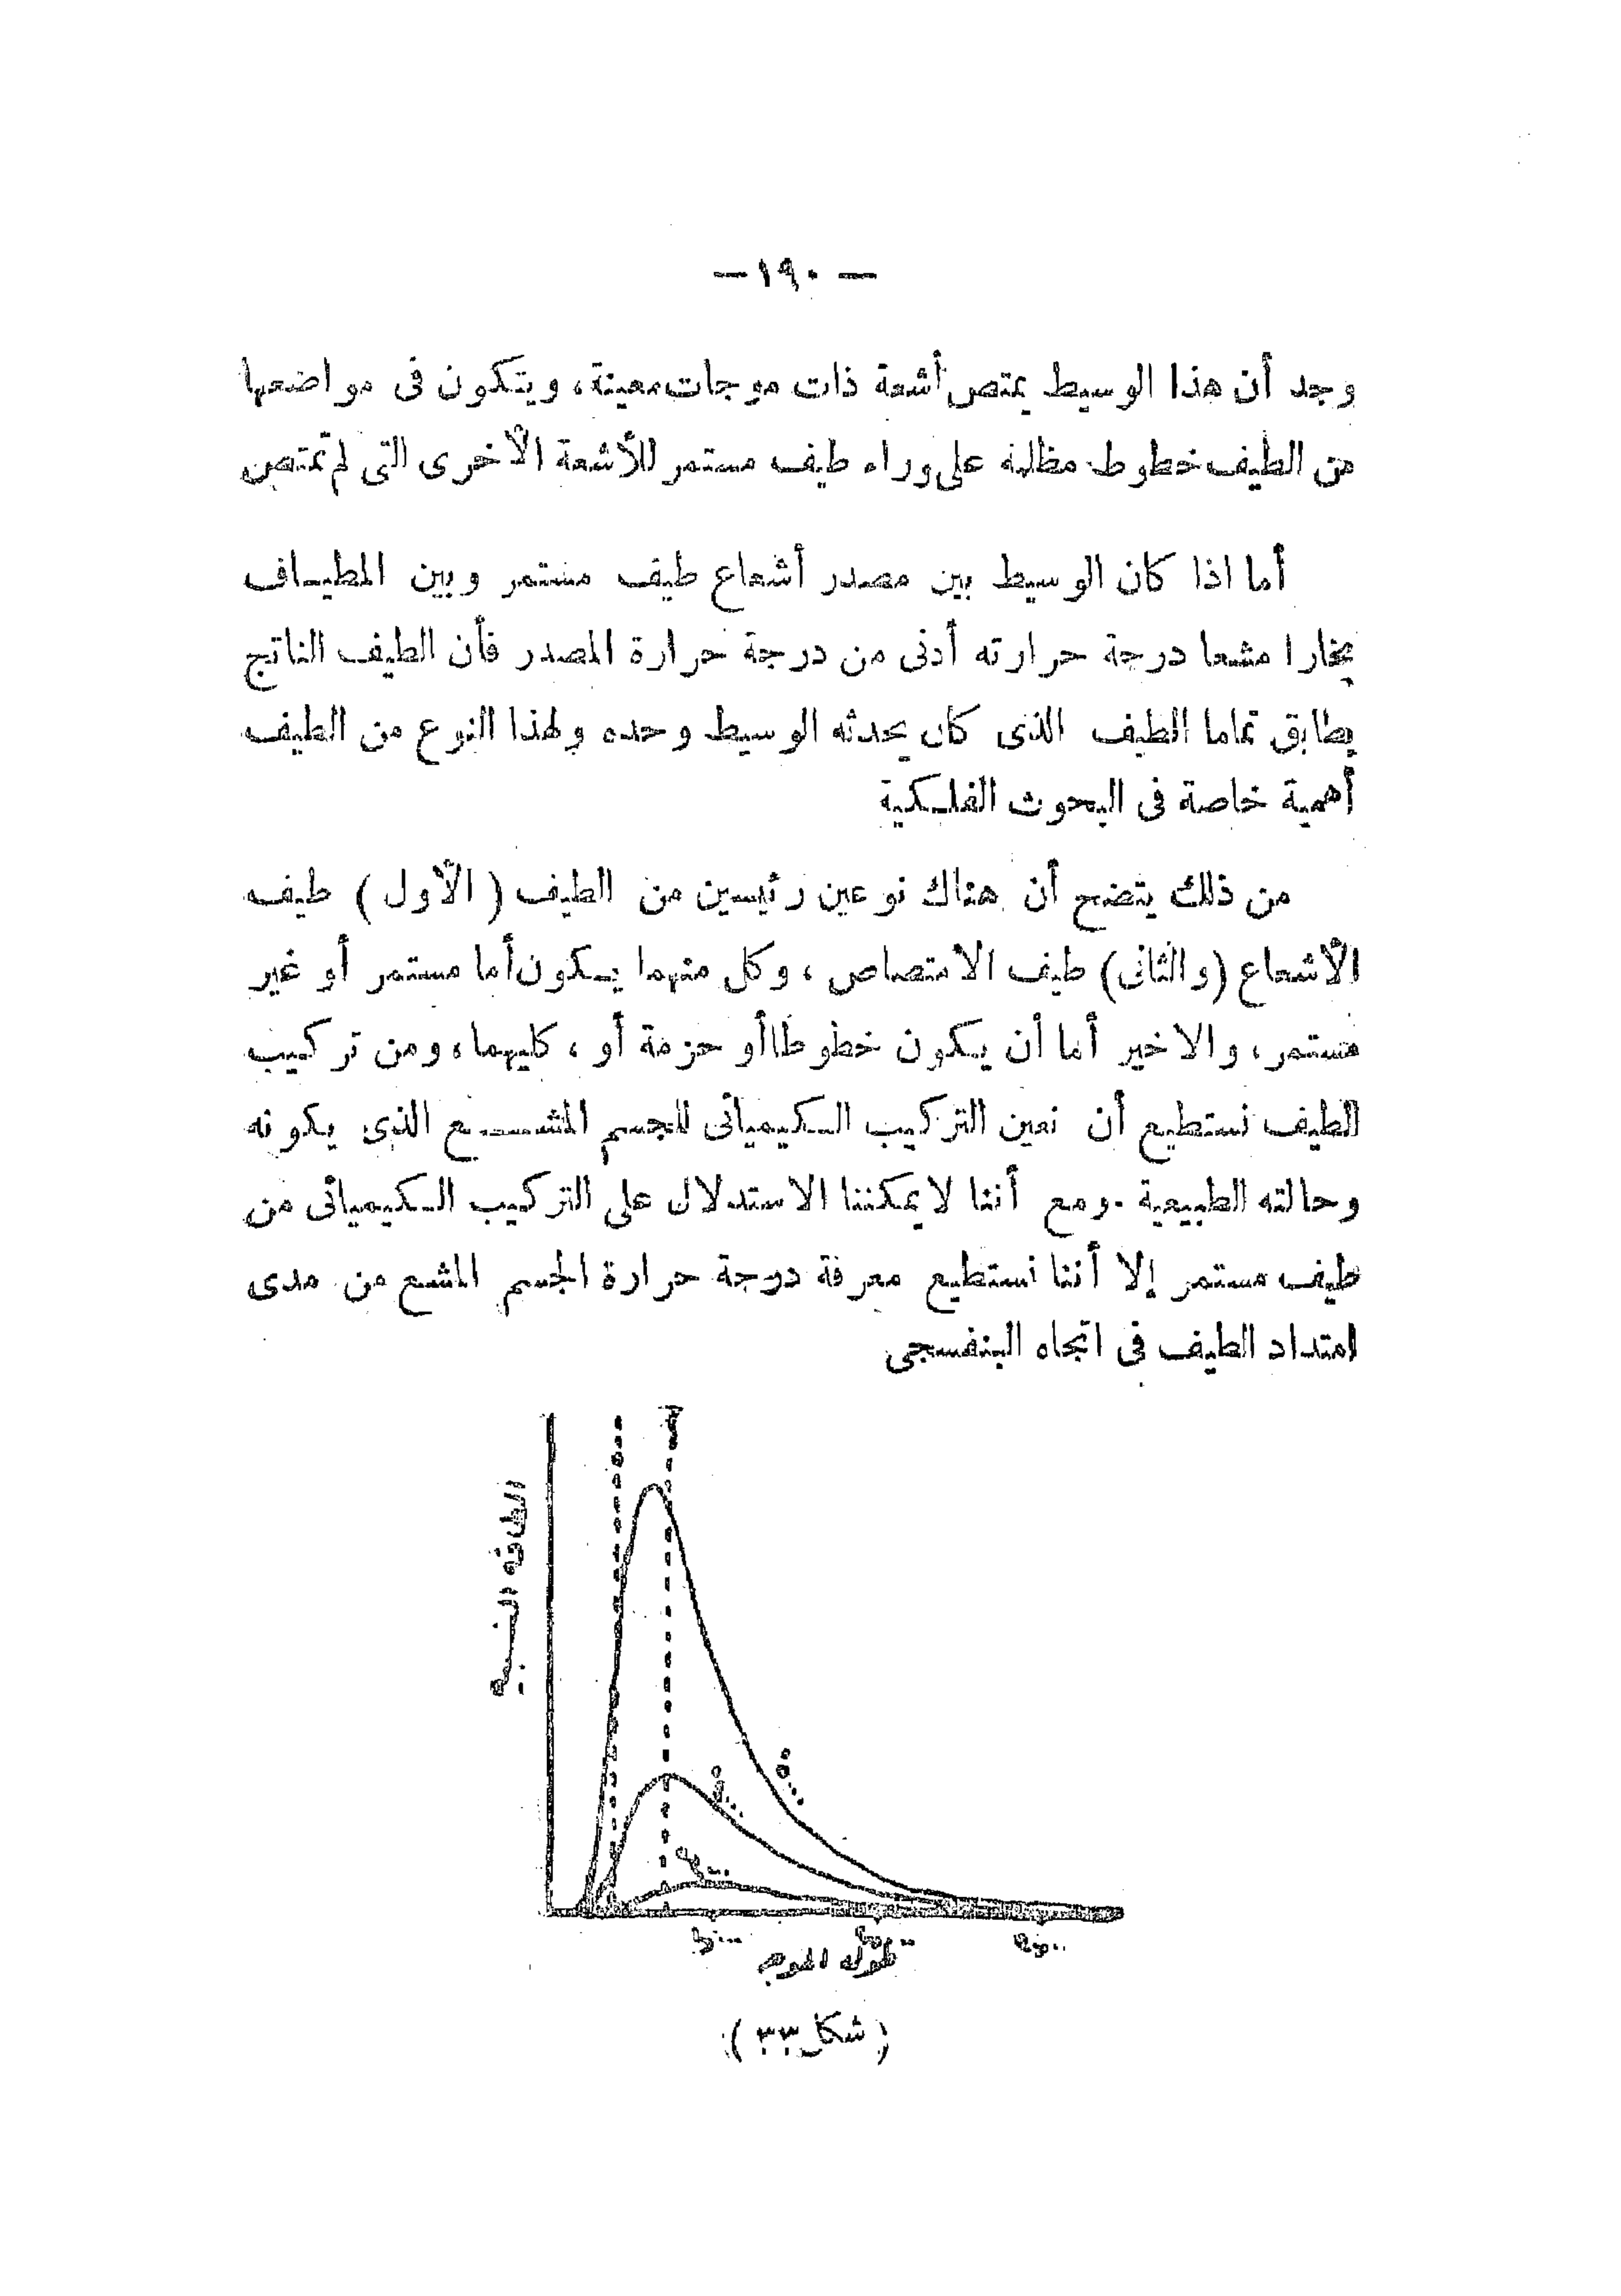 — ١٩٠ —
وجد أن هذا الوسيط يمتص أشعة ذات موجات معينة، ويتكون فى مواضعها
من الطيف خطوط مظلمة على وراء طيف مستمر للأشعة الأخرى التى لم تمتص
أما اذا كان الوسيط بين مصدر أشعاع طيف مستمر وبين المطيـاف
بخارا مشعا درجة حرارته أدنى من درجة حرارة المصدر فأن الطيف الناتج
يطابق تماما الطيف الذى كان يحدثه الوسيط وحده ولهذا النوع من الطيف
أهمية خاصة فى البحوث الفلـكية
من ذلك يتضح أن هناك نوعين رئيسين من الطيف ( الأول ) طيف
الأشعاع (والثانى) طيف الامتصاص ، وكل منهما يـكون أما مستمر أو غير
مستمر، والاخير أما أن يـكون خطوطا أو حزمة أو ، كليهما، ومن تركيب
الطيف نستطيع أن نعين التركيب الـكيميائى للجسم المشـــع الذى يكونه
وحالته الطبيعية . ومع أننا لا يمكننا الاستدلال على التركيب الـكيميائى من
طيف مستمر إلا أننا نستطيع معرفة درجة حرارة الجسم المشع من مدى
امتداد الطيف فى اتجاه البنفسجى
الطاقه النسبيه
طول الموجه
( شكل ٣٣ )